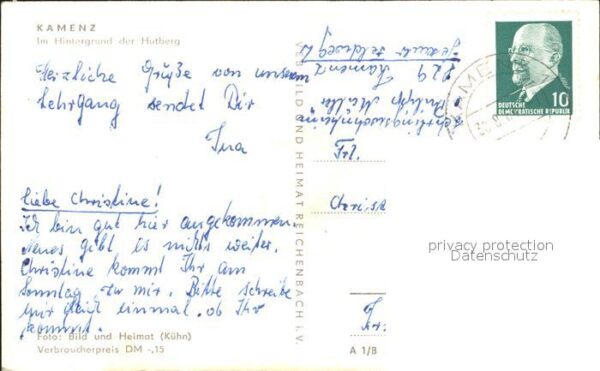 KAMENZ
Im Hintergrund der Hutberg
Herzliche Grüße von unserem
Lehrgang sendet Dir
Ina
Liebe Christine!
Ich bin gut hier angekommen.
Neues gibt es nichts weiter.
Christine kommt Ihr am
Sonntag zu mir. Bitte schreibe
mir gleich einmal, ob Ihr
kommt.
Foto: Bild und Heimat (Kühn)
Verbraucherpreis DM -,15
VEB BILD UND HEIMAT REICHENBACH i. V.
A 1/B
Lehrlingswohnheim
Philipp Müller
829 Kamenz
Frl.
KAMENZ
DEUTSCHE
DEMOKRATISCHE REPUBLIK
10
privacy protection
Datenschutz